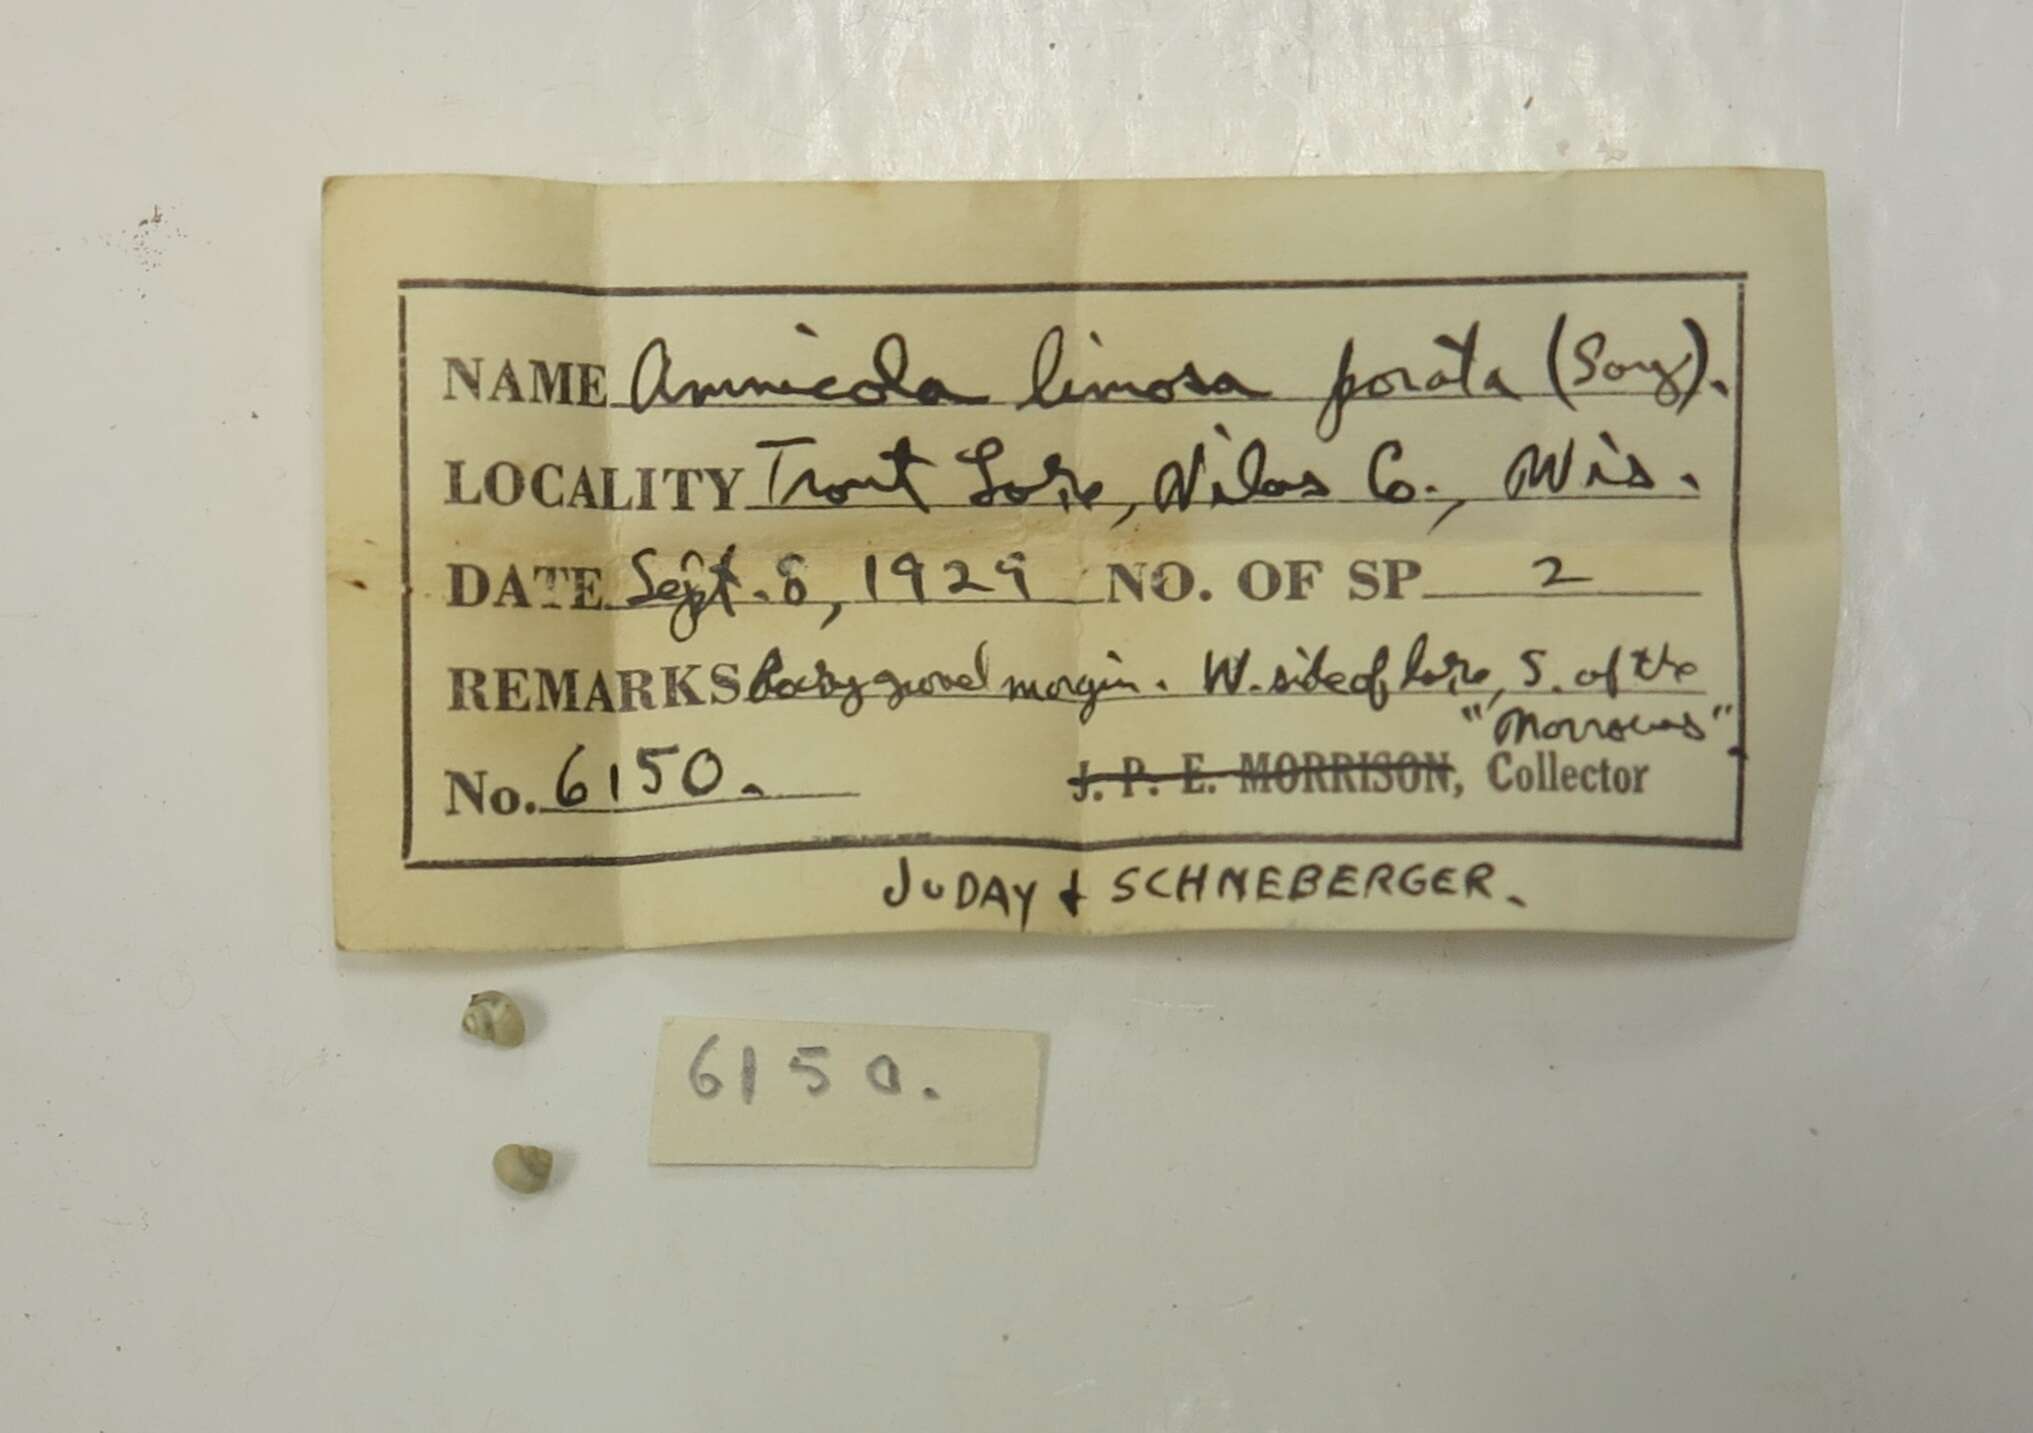 NAME Amnicola limosa porata (Say).
LOCALITY Trout Lake, Vilas Co., Wis.
DATE Sept. 8, 1929 NO. OF SP 2
REMARKS Rocky gravel margin. W. side of lake, S. of the
"Narrows".
No. 6150. J. P. E. MORRISON, Collector
JUDAY & SCHNEBERGER.
6150.